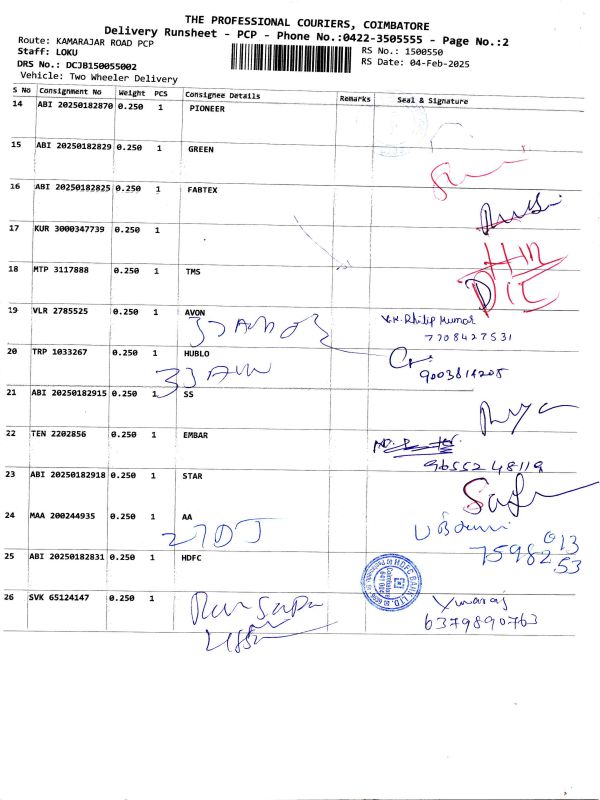 THE PROFESSIONAL COURIERS, COIMBATORE
Delivery Runsheet - PCP - Phone No.:0422-3505555 - Page No.:2
Route: KAMARAJAR ROAD PCP
RS No.: 1500550
Staff: LOKU
RS Date: 04-Feb-2025
DRS No.: DCJB150055002
Vehicle: Two Wheeler Delivery
S No Consignment No Weight PCS Consignee Details Remarks Seal & Signature
14 ABI 20250182870 0.250 1 PIONEER
15 ABI 20250182829 0.250 1 GREEN
16 ABI 20250182825 0.250 1 FABTEX
17 KUR 3000347739 0.250 1
18 MTP 3117888 0.250 1 TMS
19 VLR 2785525 0.250 1 AVON
Philip Kumar
7708427531
20 TRP 1033267 0.250 1 HUBLO
9003614205
21 ABI 20250182915 0.250 1 SS
22 TEN 2202856 0.250 1 EMBAR
9655248119
23 ABI 20250182918 0.250 1 STAR
24 MAA 200244935 0.250 1 AA
25 ABI 20250182831 0.250 1 HDFC
HDFC BANK LTD.
Coimbatore
26 SVK 65124147 0.250 1
6379890763